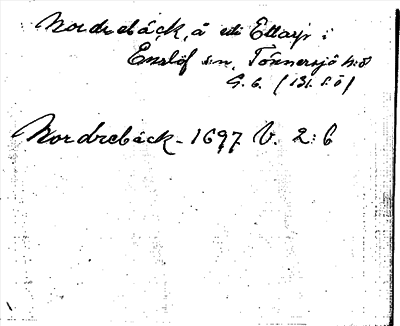 Nordrebäck, å uti Ettarp i
Enslöf sn, Tönnersjö h:d
G. b. (131. S.Ö)
Nordrebäck - 1697 V. 2:6